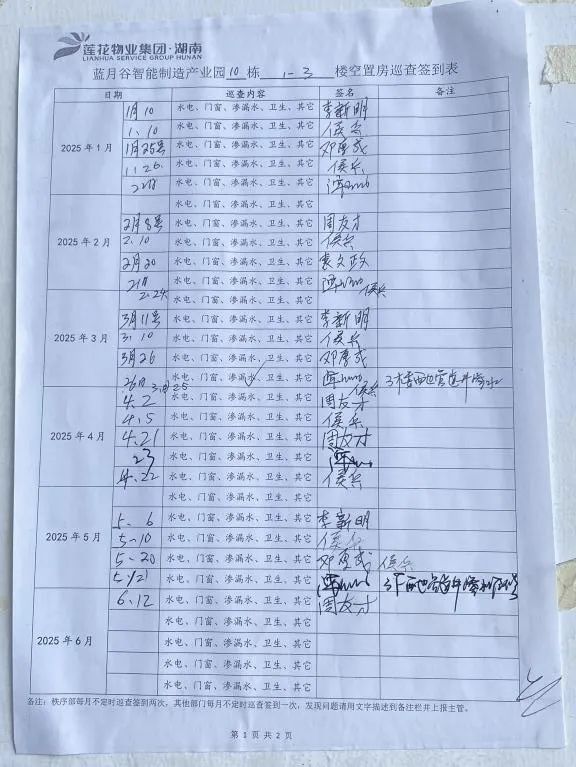 莲花物业集团·湖南
LIANHUA SERVICE GROUP HUNAN
蓝月谷智能制造产业园10栋 1-3 楼空置房巡查签到表
日期 巡查内容 签名 备注
2025年1月
1月10 水电、门窗、渗漏水、卫生、其它 李新明
1.10 水电、门窗、渗漏水、卫生、其它 侯兵
1月25号 水电、门窗、渗漏水、卫生、其它 邓厚成
1.26. 水电、门窗、渗漏水、卫生、其它 侯兵
水电、门窗、渗漏水、卫生、其它
2025年2月
水电、门窗、渗漏水、卫生、其它
2月8号 水电、门窗、渗漏水、卫生、其它 周友才
2.10 水电、门窗、渗漏水、卫生、其它 侯兵
2月20 水电、门窗、渗漏水、卫生、其它 袁文政
2.24 水电、门窗、渗漏水、卫生、其它 侯兵
2025年3月
3月11号 水电、门窗、渗漏水、卫生、其它 李新明
3.10 水电、门窗、渗漏水、卫生、其它 侯兵
3月26 水电、门窗、渗漏水、卫生、其它 邓厚成
26日 3.25 水电、门窗、渗漏水、卫生、其它 侯兵
2025年4月
4.2 水电、门窗、渗漏水、卫生、其它 周友才
4.5 水电、门窗、渗漏水、卫生、其它 侯兵
4.21 水电、门窗、渗漏水、卫生、其它 周友才
23 水电、门窗、渗漏水、卫生、其它
4.22 水电、门窗、渗漏水、卫生、其它 侯兵
2025年5月
水电、门窗、渗漏水、卫生、其它
5.6 水电、门窗、渗漏水、卫生、其它 李新明
5-10 水电、门窗、渗漏水、卫生、其它 侯兵
5-20 水电、门窗、渗漏水、卫生、其它 邓厚成 侯兵
5/21 水电、门窗、渗漏水、卫生、其它
2025年6月
6.12 水电、门窗、渗漏水、卫生、其它 周友才
水电、门窗、渗漏水、卫生、其它
水电、门窗、渗漏水、卫生、其它
水电、门窗、渗漏水、卫生、其它
水电、门窗、渗漏水、卫生、其它
备注：秩序部每月不定时巡查签到两次，其他部门每月不定时巡查签到一次，发现问题请用文字描述到备注栏并上报主管。
第 1 页 共 2 页